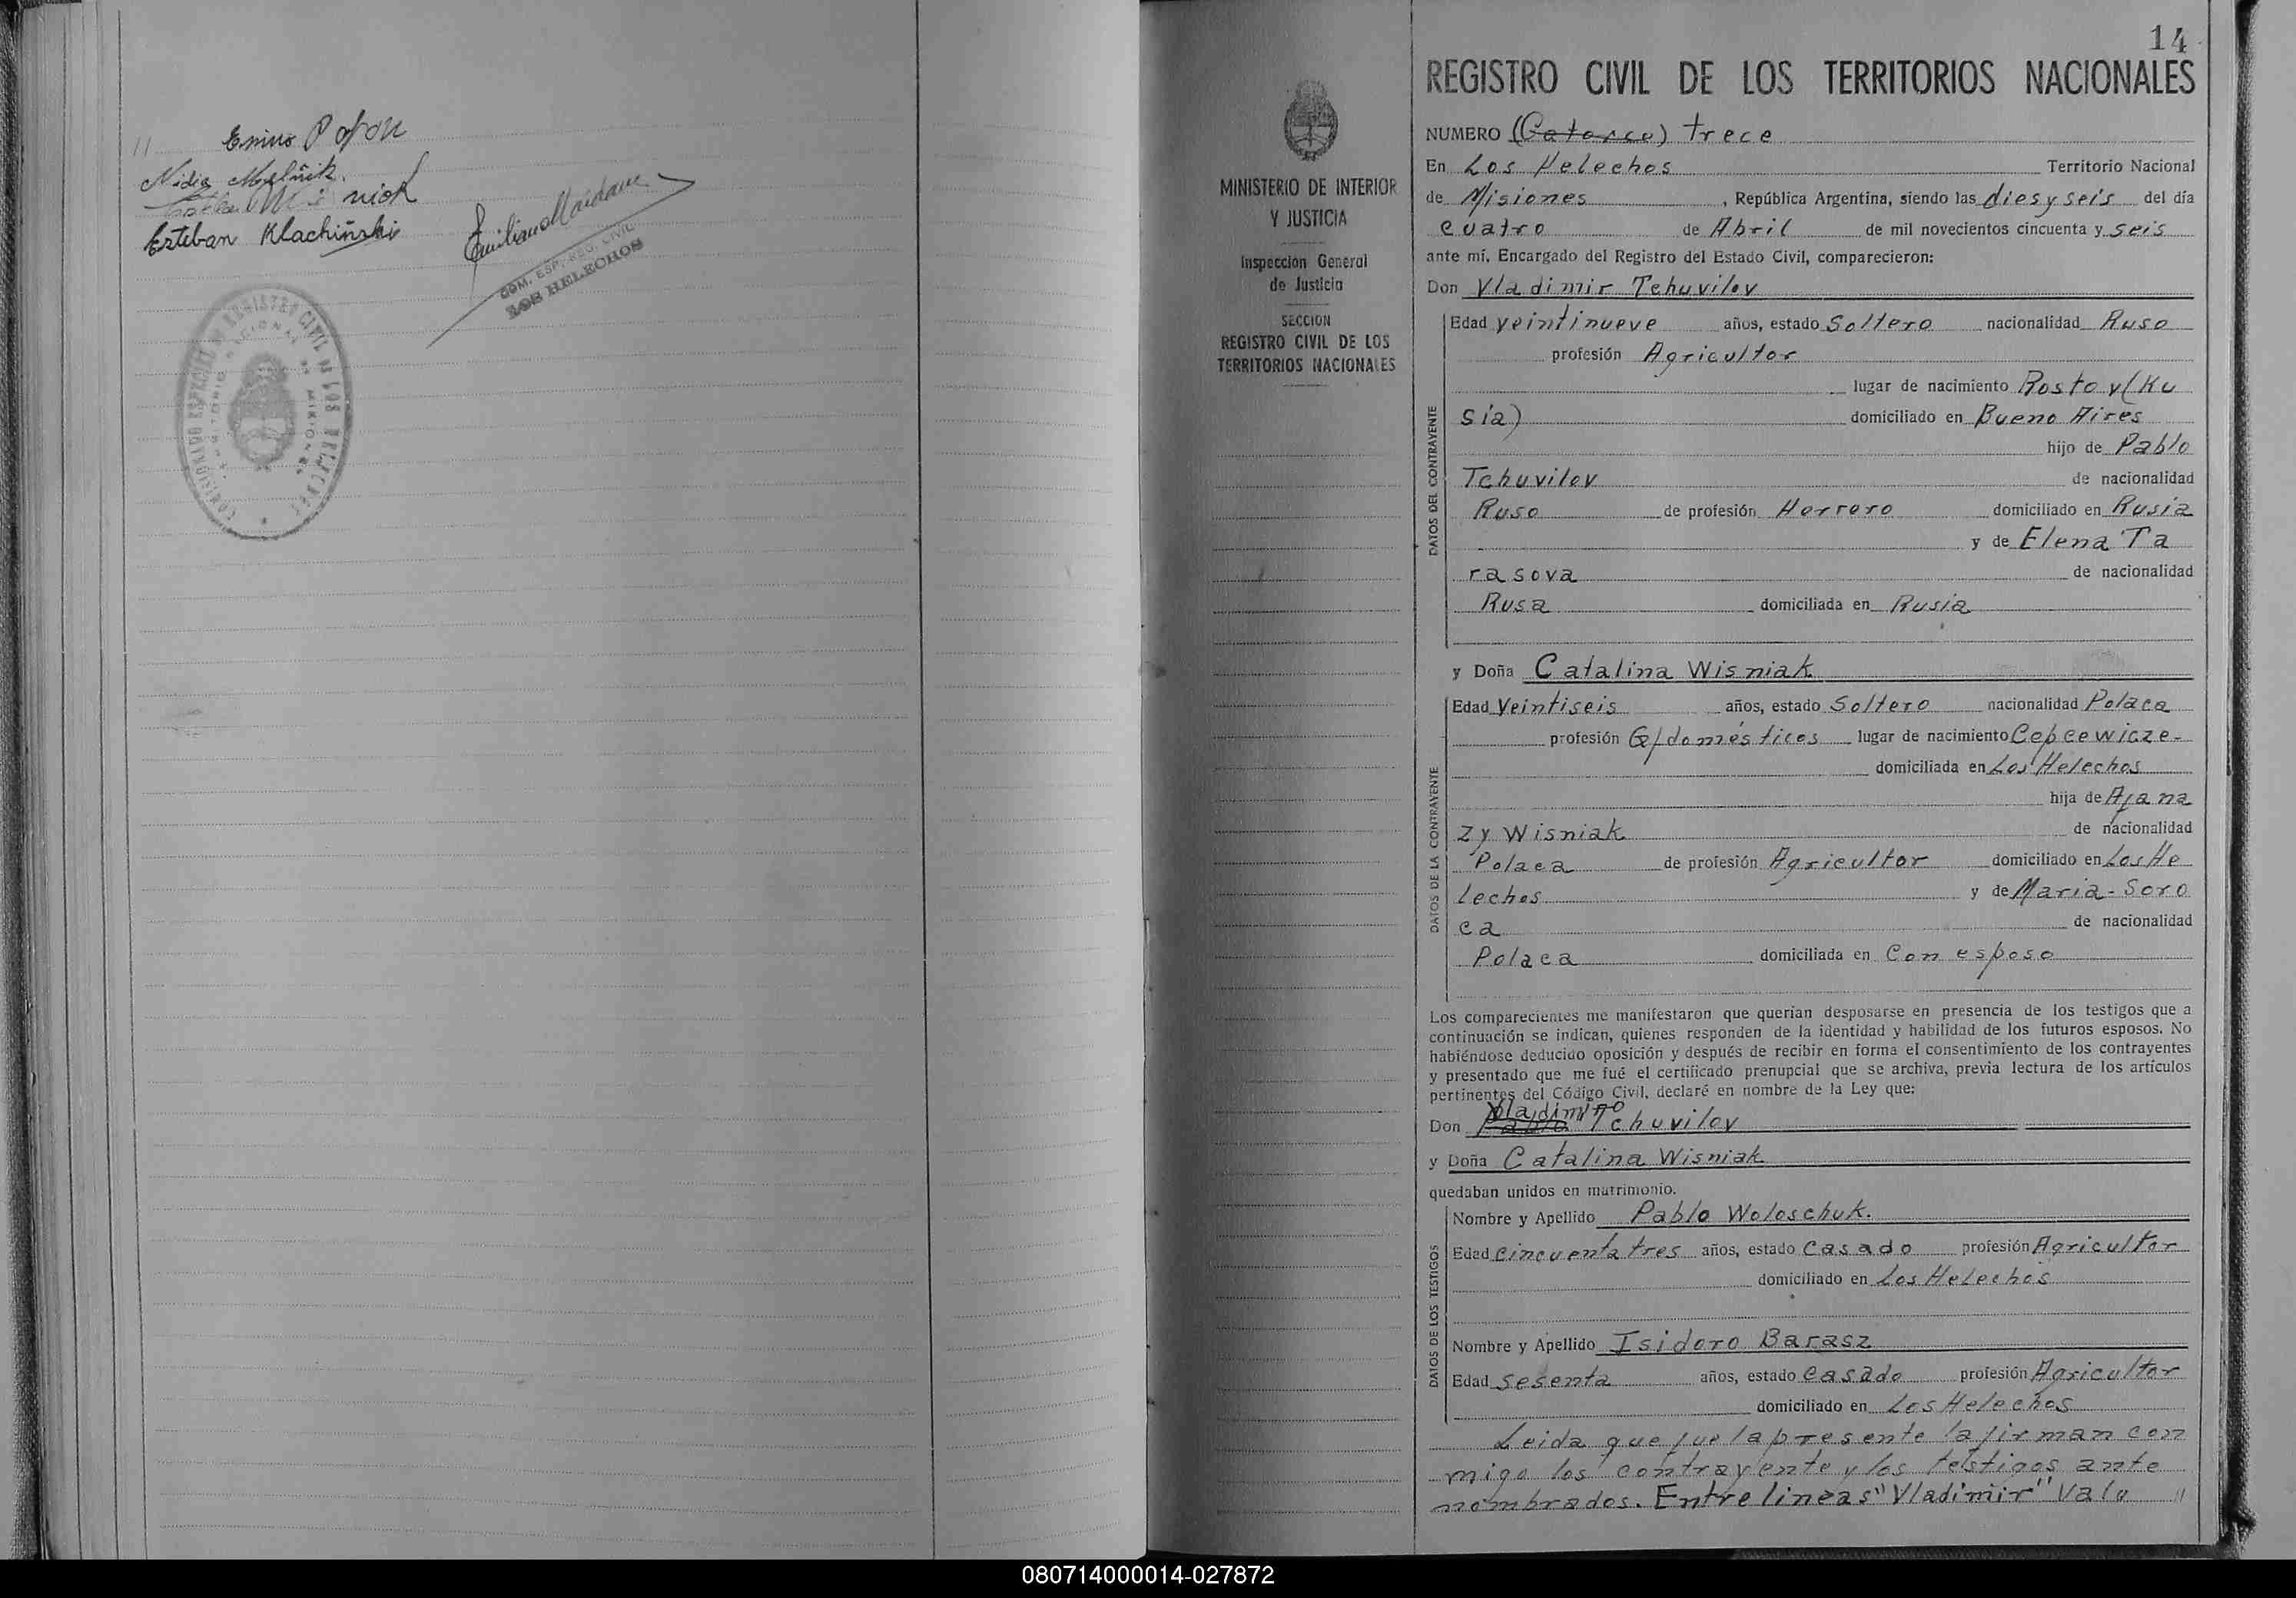 Emino Popon
Nidia Melñik.
Esteban Klachiñski
Emiliano Maidana
COM. ESP. REG. CIVIL
LOS HELECHOS
COMISIONADO ESPECIAL DE REGISTRO CIVIL DE LOS HELECHOS
TERRITORIO NACIONAL DE MISIONES
14
MINISTERIO DE INTERIOR
Y JUSTICIA
Inspección General
de Justicia
SECCION
REGISTRO CIVIL DE LOS
TERRITORIOS NACIONALES
REGISTRO CIVIL DE LOS TERRITORIOS NACIONALES
NUMERO (Catorce) trece
En Los Helechos Territorio Nacional
de Misiones, República Argentina, siendo las diesyseis del día
cuatro de Abril de mil novecientos cincuenta y seis
ante mí, Encargado del Registro del Estado Civil, comparecieron:
Don Vladimir Tchuvilov
DATOS DEL CONTRAYENTE
Edad veintinueve años, estado Soltero nacionalidad Ruso
profesión Agricultor
lugar de nacimiento Rostov (Ru
sia) domiciliado en Bueno Aires
hijo de Pablo
Tchuvilov de nacionalidad
Ruso de profesión Herrero domiciliado en Rusia
y de Elena Ta
rasova de nacionalidad
Rusa domiciliada en Rusia
y Doña Catalina Wisniak
DATOS DE LA CONTRAYENTE
Edad Veintiseis años, estado Soltero nacionalidad Polaca
profesión Q/domésticos lugar de nacimiento Cepcewicze-
domiciliada en Los Helechos
hija de Ajana
zy Wisniak de nacionalidad
Polaca de profesión Agricultor domiciliado en Los He
lechos y de Maria-Soro
ca de nacionalidad
Polaca domiciliada en Con esposo
Los comparecientes me manifestaron que querían desposarse en presencia de los testigos que a
continuación se indican, quienes responden de la identidad y habilidad de los futuros esposos. No
habiéndose deducido oposición y después de recibir en forma el consentimiento de los contrayentes
y presentado que me fué el certificado prenupcial que se archiva, previa lectura de los artículos
pertinentes del Código Civil, declaré en nombre de la Ley que:
Vladimiro
Don Pablo Tchuvilov
y Doña Catalina Wisniak
quedaban unidos en matrimonio.
DATOS DE LOS TESTIGOS
Nombre y Apellido Pablo Woloschuk.
Edad cincuenta tres años, estado casado profesión Agricultor
domiciliado en Los Helechos
Nombre y Apellido Isidoro Barasz
Edad sesenta años, estado casado profesión Agricultor
domiciliado en Los Helechos
Leida que fue la presente la firman con
migo los contrayente y los testigos ante
nombrados. Entre lineas "Vladimir" Vale "
080714000014-027872